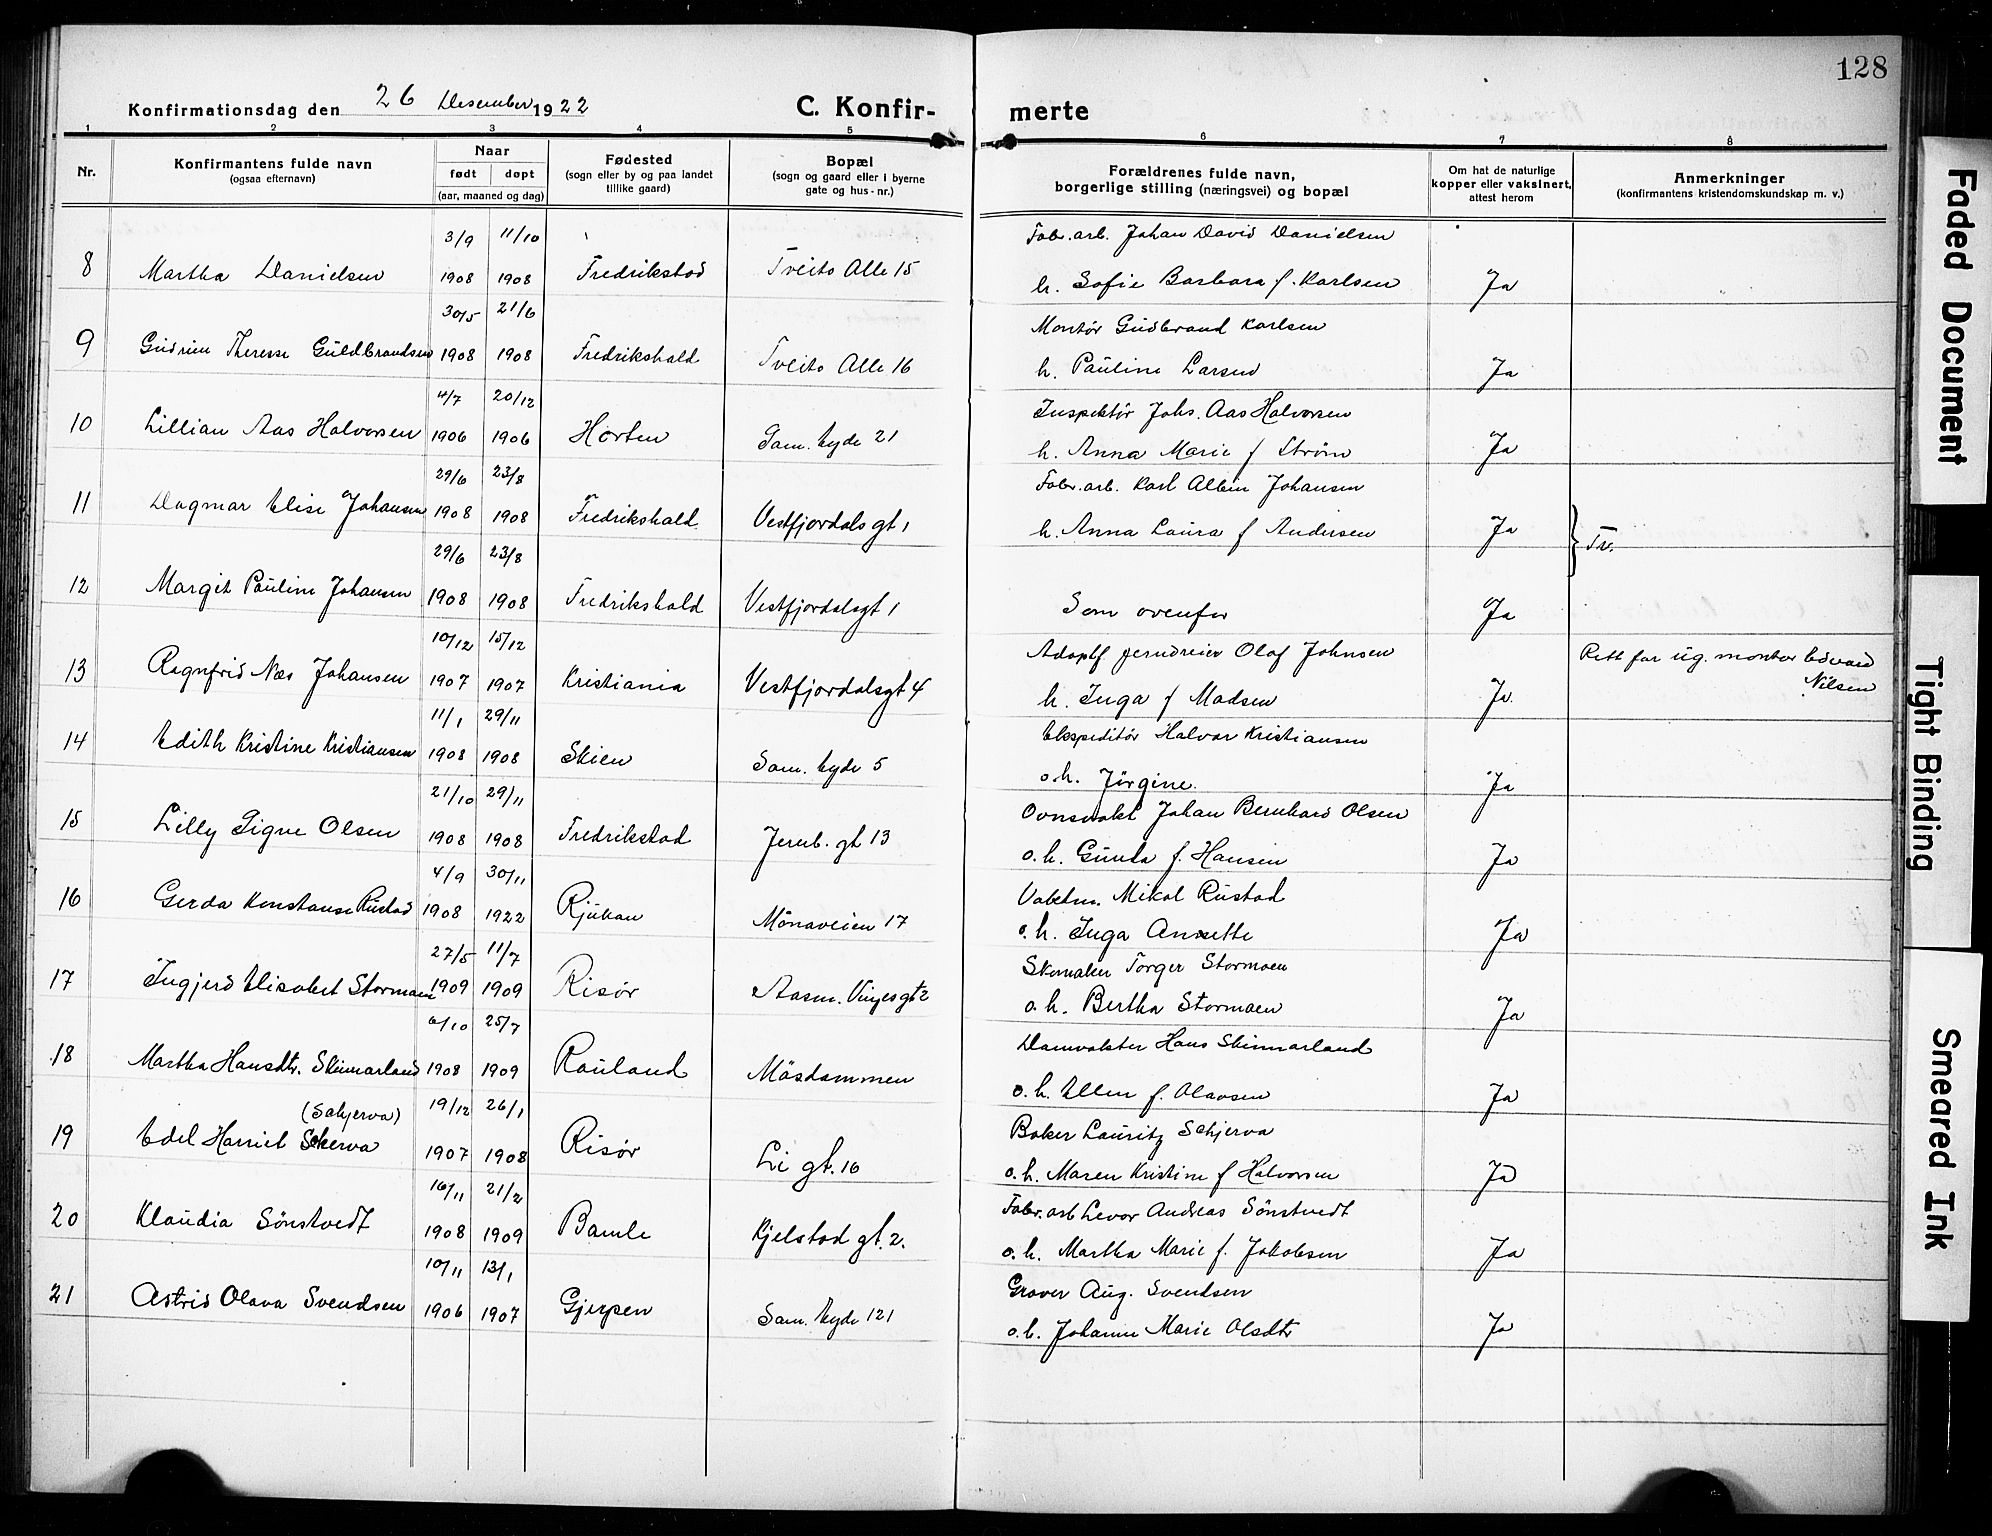 128
Konfirmationsdag den 26 Desember 1922 C. Konfirmerte
1 2 3 4 5 6 7 8
Nr.
Konfirmantens fulde navn
(ogsaa efternavn)
Naar
født døpt
(aar, maaned og dag)
Fødested
(sogn eller by og paa landet
tillike gaard)
Bopæl
(sogn og gaard eller i byerne
gate og hus-nr.)
Forældrenes fulde navn,
borgerlige stilling (næringsvei) og bopæl
Om hat de naturlige
kopper eller vaksinert,
attest herom
Anmerkninger
(konfirmantens kristendomskundskap m. v.)
3/9 11/10 Fabr. arb. Johan David Danielsen
8 Martha Danielsen 1908 1908 Fredrikstad Tveito Alle 15 h. Sofie Barbara f. Karlsen Ja
30/5 21/6 Montør Gudbrand Karlsen
9 Gudrun Therese Guldbrandsen 1908 1908 Fredrikshald Tveito Alle 16 h. Pauline Larsen Ja
4/7 20/12 Inspektør Johs. Aas Halvorsen
10 Lillian Aas Halvorsen 1906 1906 Horten Sam. Eyde 21 h. Anna Marie f Strøm Ja
29/6 23/8 Fabr. arb. Karl Albin Johansen
11 Dagmar Elise Johansen 1908 1908 Fredrikshald. Vestfjordalsgt 1 h. Anna Laura f Andersen Ja } Tv.
29/6 23/8
12 Margit Pauline Johansen 1908 1908 Fredrikshald Vestfjordalsgt 1 Som ovenfor Ja
10/12 15/12 Adoptf. jerndreier Olaf Johnsen Rett far ug. montør Edvard
13 Ragnfrid Næs Johansen 1907 1907 Kristiania Vestfjordalsgt 4 h. Inga f Madsen Ja Nilsen
11/1 29/11 Ekspeditør Halvor Kristiansen
14 Edith Kristine Kristiansen 1908 1908 Skien Sam. Eyde 5 o.h. Jörgine. Ja
21/10 29/11 Ovnsvakt Johan Bernhard Olsen
15 Lilly Signe Olsen 1908 1908 Fredrikstad Jernb. gt 13 o.h. Gunda f. Hansen Ja
4/9 30/11 Vaktm. Mikal Rustad
16 Gerda Konstanse Rustad 1908 1922 Rjukan Mönaveien 17 o.h. Inga Annette Ja
27/5 11/7 Skomaker Torger Stormoen
17 Ingjerd Elisabet Stormoen 1909 1909 Risør Aasm. Vinjesgt 2 o.h. Bertha Stormoen Ja
6/10 25/7 Damvakter Hans Skinnarland
18 Martha Hansdtr. Skinnarland 1908 1909 Rauland Mösdammen o.h. Ellen f. Olavsen Ja
(Schjerva) 19/12 26/1 Baker Lauritz Schjerva
19 Edel Harriet Skerva 1907 1908 Risør Li gt. 16 o.h. Maren Kristine f Halvorsen Ja
16/11 21/2 Fabr. arb Levor Andreas Sönstvedt
20 Klaudia Sönstvedt 1908 1909 Bamle Kjelstad gt. 2. o.h. Martha Marie f. Jakobsen Ja
10/11 13/1 Graver Aug. Svendsen
21 Astrid Olava Svendsen 1906 1907 Gjerpen Sam. Eyde 121 o.h. Johanne Marie Olsdtr Ja
Faded Document
Tight Binding
Smeared Ink